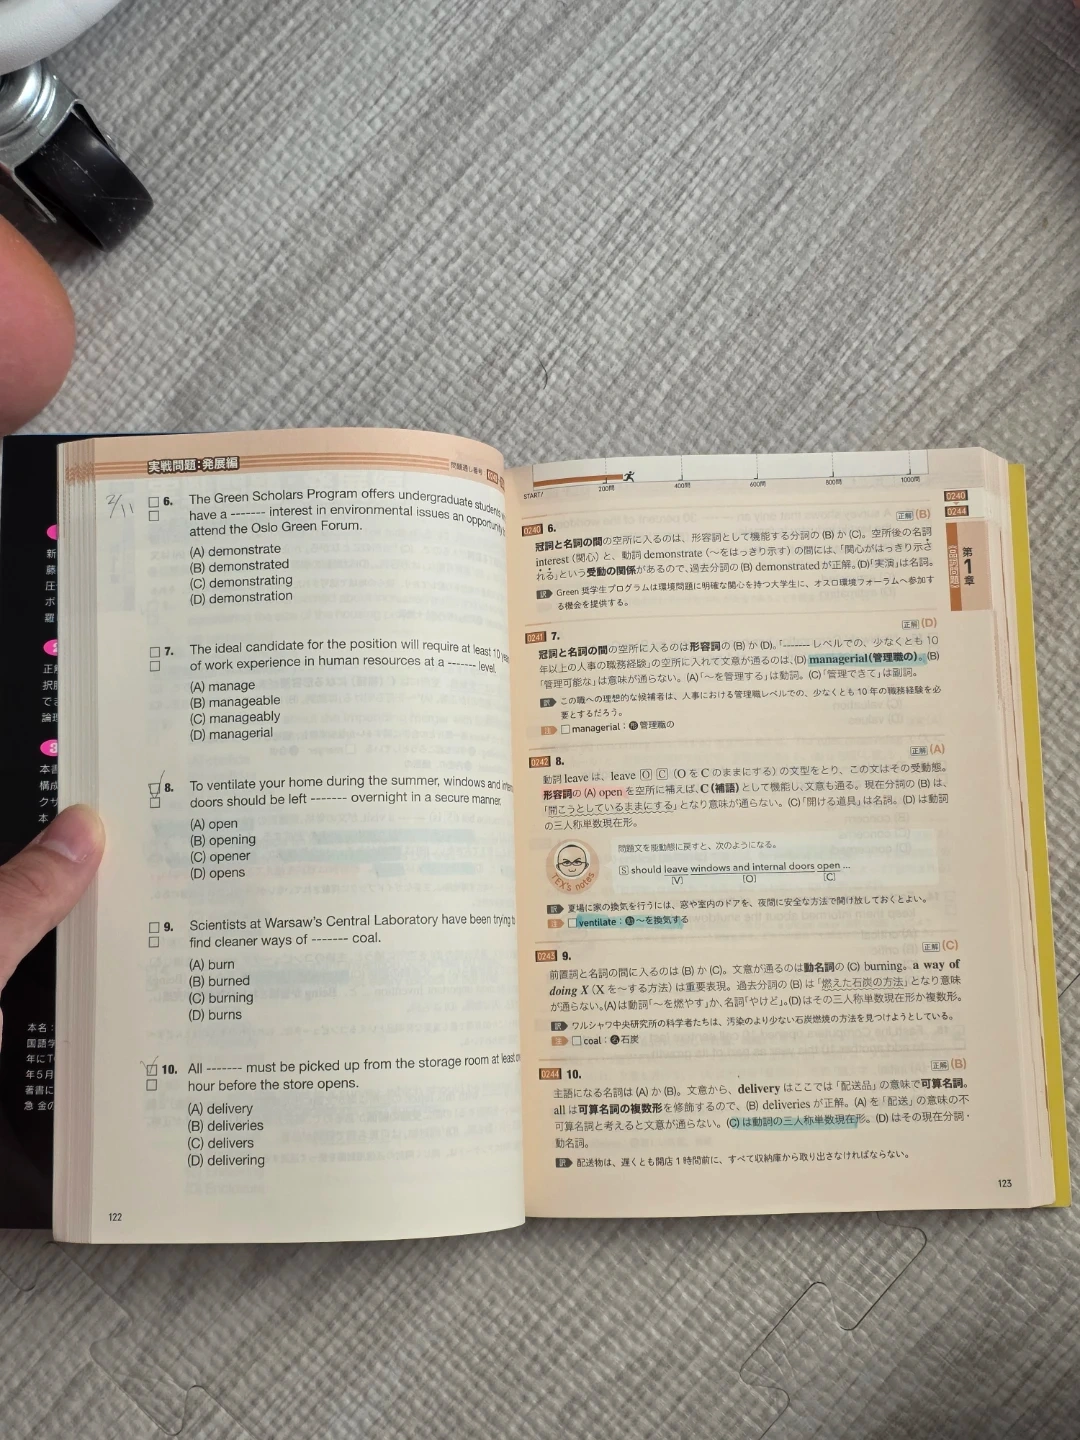 実戦問題:発展編
問題通し番号
2/11
6. The Green Scholars Program offers undergraduate students
have a ------- interest in environmental issues an opportunity
attend the Oslo Green Forum.
(A) demonstrate
(B) demonstrated
(C) demonstrating
(D) demonstration
7. The ideal candidate for the position will require at least 10
of work experience in human resources at a ------- level.
(A) manage
(B) manageable
(C) manageably
(D) managerial
8. To ventilate your home during the summer, windows and
doors should be left ------- overnight in a secure manner.
(A) open
(B) opening
(C) opener
(D) opens
9. Scientists at Warsaw's Central Laboratory have been trying
find cleaner ways of ------- coal.
(A) burn
(B) burned
(C) burning
(D) burns
10. All ------- must be picked up from the storage room at least
hour before the store opens.
(A) delivery
(B) deliveries
(C) delivers
(D) delivering
122
START! 200問 400問 600問 800問 1000問
0240
0244
第1章
品詞問題
0240 6. 正解 (B)
冠詞と名詞の間の空所に入るのは、形容詞として機能する分詞の (B) か (C)。空所後の名詞
interest (関心) と、動詞 demonstrate (〜をはっきり示す) の間には、「関心がはっきり示さ
れる」という受動の関係があるので、過去分詞の (B) demonstrated が正解。(D)「実演」は名詞。
訳 Green 奨学生プログラムは環境問題に明確な関心を持つ大学生に、オスロ環境フォーラムへ参加す
る機会を提供する。
0241 7. 正解 (D)
冠詞と名詞の間の空所に入るのは形容詞の (B) か (D)。「------- レベルでの、少なくとも 10
年以上の人事の職務経験」の空所に入れて文意が通るのは、(D) managerial(管理職の)。(B)
「管理可能な」は意味が通らない。(A)「〜を管理する」は動詞。(C)「管理できて」は副詞。
訳 この職への理想的な候補者は、人事における管理職レベルでの、少なくとも 10 年の職務経験を必
要とするだろう。
注 □ managerial:形 管理職の
0242 8. 正解 (A)
動詞 leave は、leave O C (O を C のままにする) の文型をとり、この文はその受動態。
形容詞の (A) open を空所に補えば、C (補語) として機能し、文意も通る。現在分詞の (B) は、
「開こうとしているままにする」となり意味が通らない。(C)「開ける道具」は名詞。(D) は動詞
の三人称単数現在形。
TEX's notes
問題文を能動態に戻すと、次のようになる。
S should leave windows and internal doors open ...
[V] [O] [C]
訳 夏場に家の換気を行うには、窓や室内のドアを、夜間に安全な方法で開け放しておくとよい。
注 □ ventilate:動 〜を換気する
0243 9. 正解 (C)
前置詞と名詞の間に入るのは (B) か (C)。文意が通るのは動名詞の (C) burning。a way of
doing X (X を〜する方法) は重要表現。過去分詞の (B) は「燃えた石炭の方法」となり意味
が通らない。(A)は動詞「〜を燃やす」か、名詞「やけど」。(D)はその三人称単数現在形か複数形。
訳 ワルシャワ中央研究所の科学者たちは、汚染のより少ない石炭燃焼の方法を見つけようとしている。
注 □ coal:名 石炭
0244 10. 正解 (B)
主語になる名詞は (A) か (B)。文意から、delivery はここでは「配送品」の意味で可算名詞。
all は可算名詞の複数形を修飾するので、(B) deliveries が正解。(A) を「配送」の意味の不
可算名詞と考えると文意が通らない。(C) は動詞の三人称単数現在形。(D) はその現在分詞・
動名詞。
訳 配送物は、遅くとも開店 1 時間前に、すべて収納庫から取り出さなければならない。
123